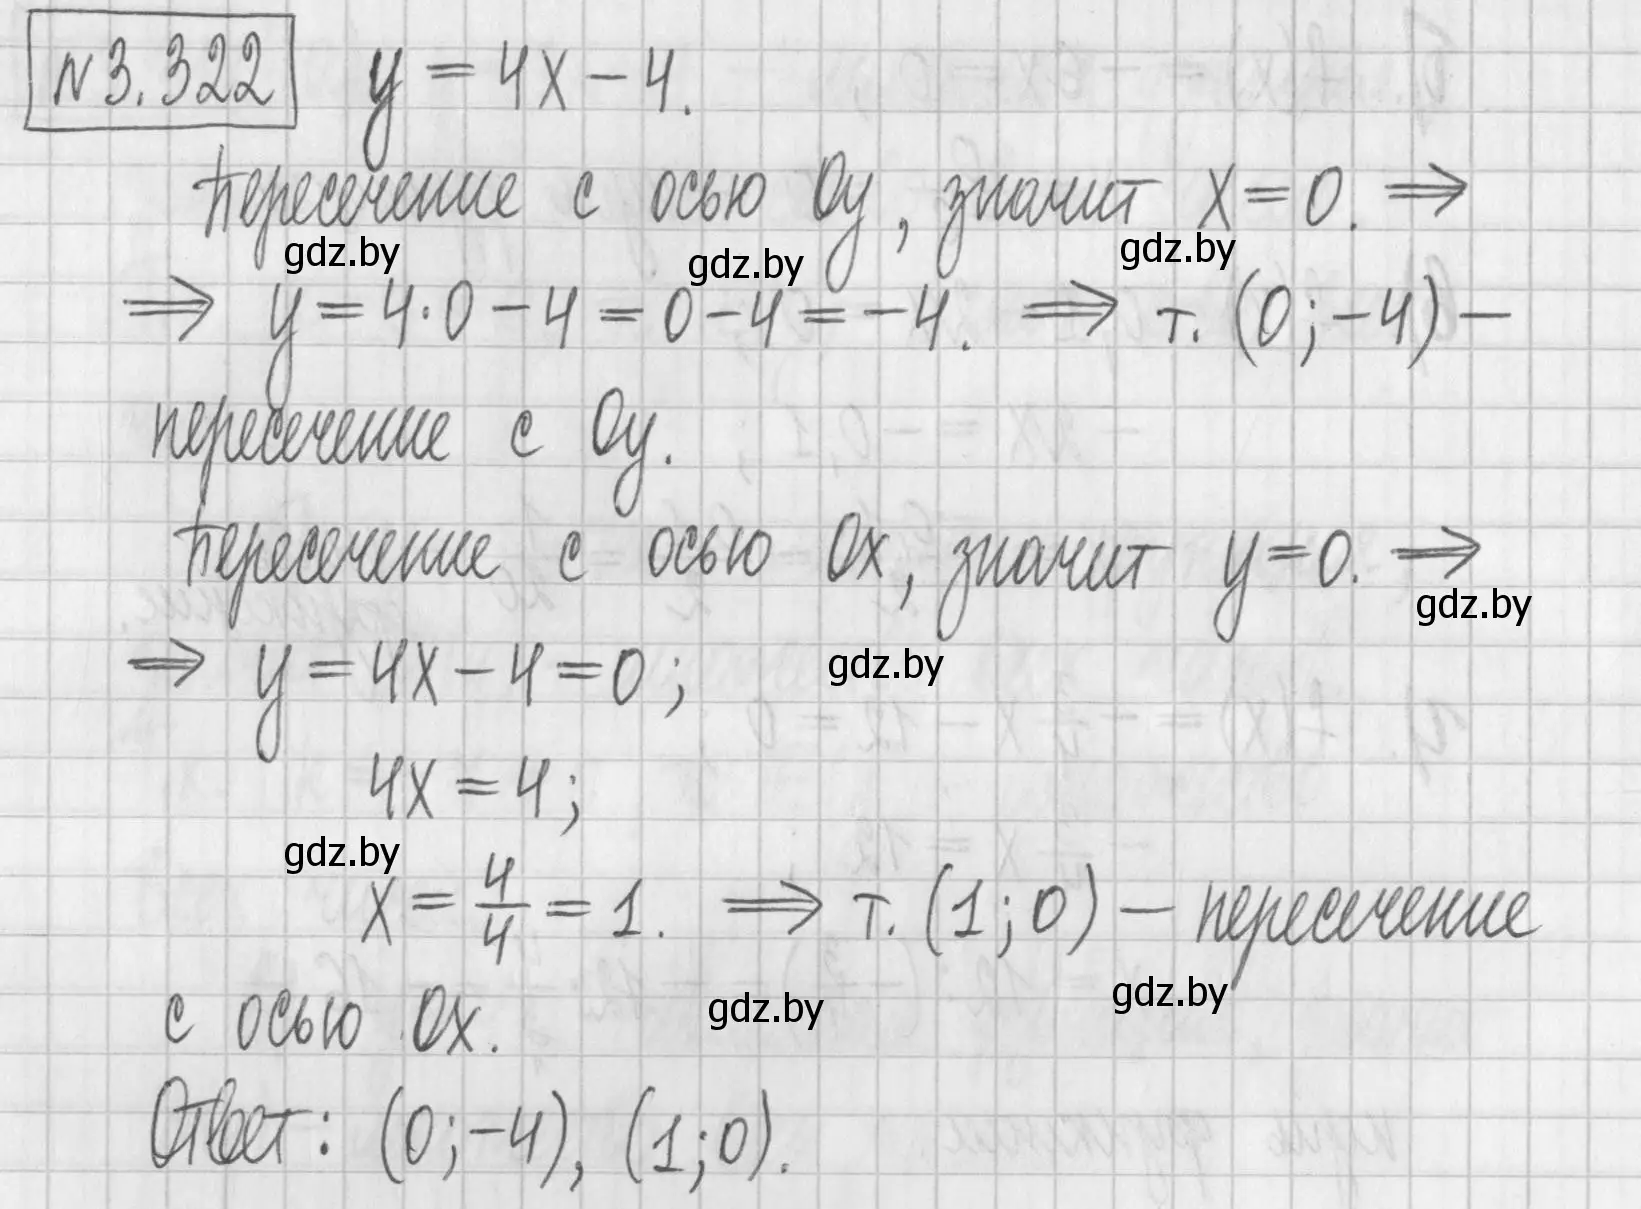 №3.322 y = 4x - 4.
Пересечение с осью Oy, значит x = 0. ⇒
gdz.by gdz.by gdz.by
⇒ y = 4·0 - 4 = 0 - 4 = -4. ⇒ т. (0; -4) -
пересечение с Oy.
Пересечение с осью Ox, значит y = 0. ⇒
gdz.by
⇒ y = 4x - 4 = 0; gdz.by
4x = 4;
gdz.by
x = 4/4 = 1. ⇒ т. (1; 0) - пересечение
gdz.by gdz.by
с осью Ox.
Ответ: (0; -4), (1; 0).